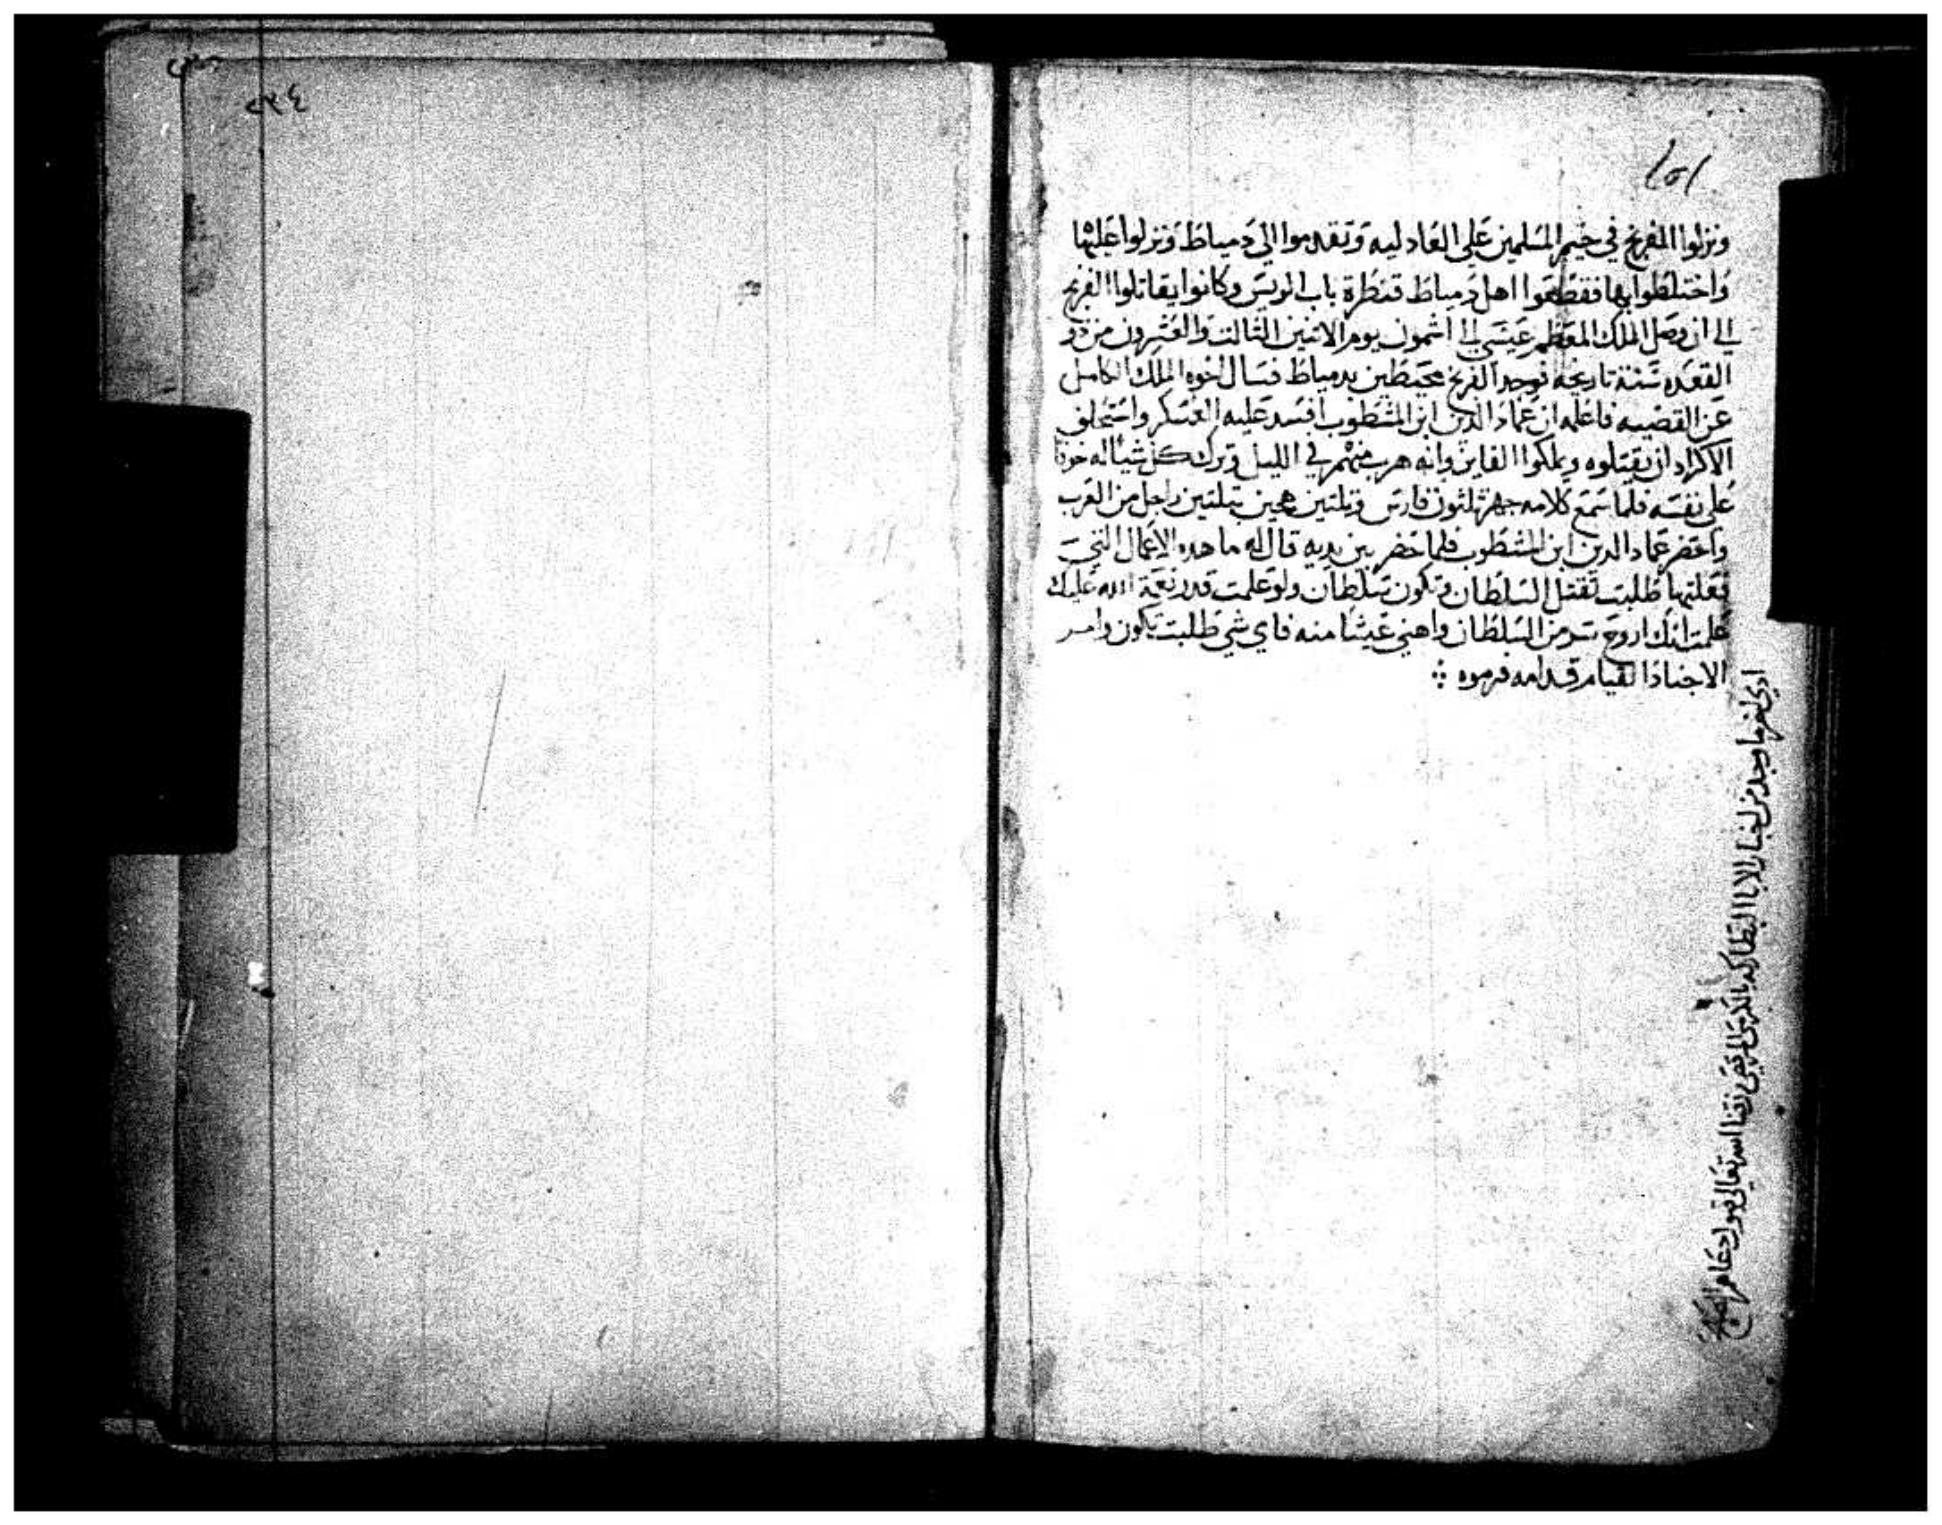 ونزلوا الفرنج في خيم المسلمين علي العادليه وتقدموا الي دمياط ونزلوا عليها
واختلطوا بها فقطعوا اهل دمياط قنطرة باب الويس وكانوا يقاتلوا الفرنج
الي ان وصل الملك المعظم عيسي الي اشمون يوم الاتنين التالت والعشرون من ذو
القعده سنة تاريخه فوجد الفرنج محيطين بدمياط فسال اخوه الملك الكامل
عن القضيه فاعلمه ان عماد الدين ابن المشطوب افسد عليه العسكر واستحلف
الاكراد ان يقتلوه ويملكوا الفايز وانه هرب منهم في الليل وترك كل شياله خوفا
علي نفسه فلما سمع كلامه جهز تلتون فارس وتلتين هجين بتلتين راجل من العرب
واحضر عماد الدين ابن المشطوب فلما حضر بين يديه قال له ما هده الاعمال التي
فعلتها طلبت تقتل السلطان وتكون سلطان ولو علمت قدر نعمة الله عليك
علمت انك اروح سر من السلطان واهني عيشا منه فاي شي طلبت تكون وامر
الاجناد القيام قدامه فرموه
الاخر ما وجد من اخبار الابا البطاركه بالكرسي المرقسي رزقنا الله تعالي قبول دعاهم